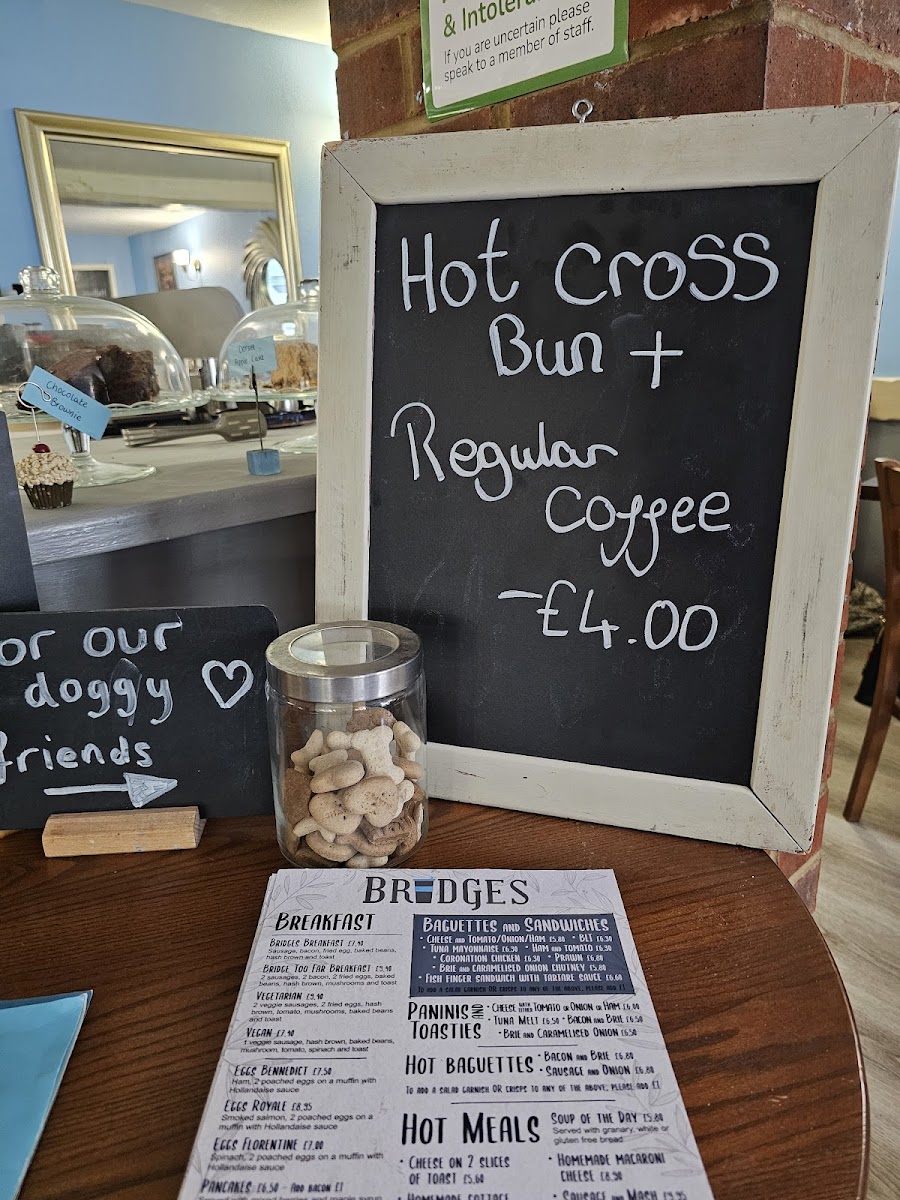 & Intoler
If you are uncertain please
speak to a member of staff.
Hot Cross
Bun +
Regular
Coffee
-£4.00
Chocolate
Brownie
Apple Cake
or our
doggy
friends
BRIDGES
BREAKFAST
BRIDGES BREAKFAST £7.90
Sausage, bacon, fried egg, baked beans,
hash brown and toast
BRIDGE TOO FAR BREAKFAST £9.90
2 sausages, 2 bacon, 2 fried eggs, baked
beans, hash brown, mushrooms and toast
VEGETARIAN £9.90
2 veggie sausages, 2 fried eggs, hash
brown, tomato, mushrooms, baked beans
and toast
VEGAN £7.90
1 veggie sausage, hash brown, baked beans,
mushroom, tomato, spinach and toast
EGGS BENNEDICT £7.50
Ham, 2 poached eggs on a muffin with
Hollandaise sauce
EGGS ROYALE £8.95
Smoked salmon, 2 poached eggs on a
muffin with Hollandaise sauce
EGGS FLORENTINE £7.00
Spinach, 2 poached eggs on a muffin with
Hollandaise sauce
PANCAKES £6.50 - ADD BACON £1
BAGUETTES AND SANDWICHES
• CHEESE AND TOMATO/ONION/HAM £5.80 • BLT £6.30
• TUNA MAYONNAISE £6.30 • HAM AND TOMATO £6.30
• CORONATION CHICKEN £6.30 • PRAWN £6.80
• BRIE AND CARAMELISED ONION CHUTNEY £5.80
• FISH FINGER SANDWICH WITH TARTARE SAUCE £6.60
TO ADD A SALAD GARNISH OR CRISPS TO ANY OF THE ABOVE, PLEASE ADD £1
PANINIS AND TOASTIES
• CHEESE WITH EITHER TOMATO OR ONION OR HAM £6.00
• TUNA MELT £6.50 • BACON AND BRIE £6.50
• BRIE AND CARAMELISED ONION £6.50
HOT BAGUETTES
• BACON AND BRIE £6.80
• SAUSAGE AND ONION £6.80
TO ADD A SALAD GARNISH OR CRISPS TO ANY OF THE ABOVE, PLEASE ADD £1
HOT MEALS
• CHEESE ON 2 SLICES
OF TOAST £5.60
HOMEMADE COTTAGE
SOUP OF THE DAY £5.80
Served with granary, white or
gluten free bread
• HOMEMADE MACARONI
CHEESE £8.50
• SAUSAGE AND MASH £9.95